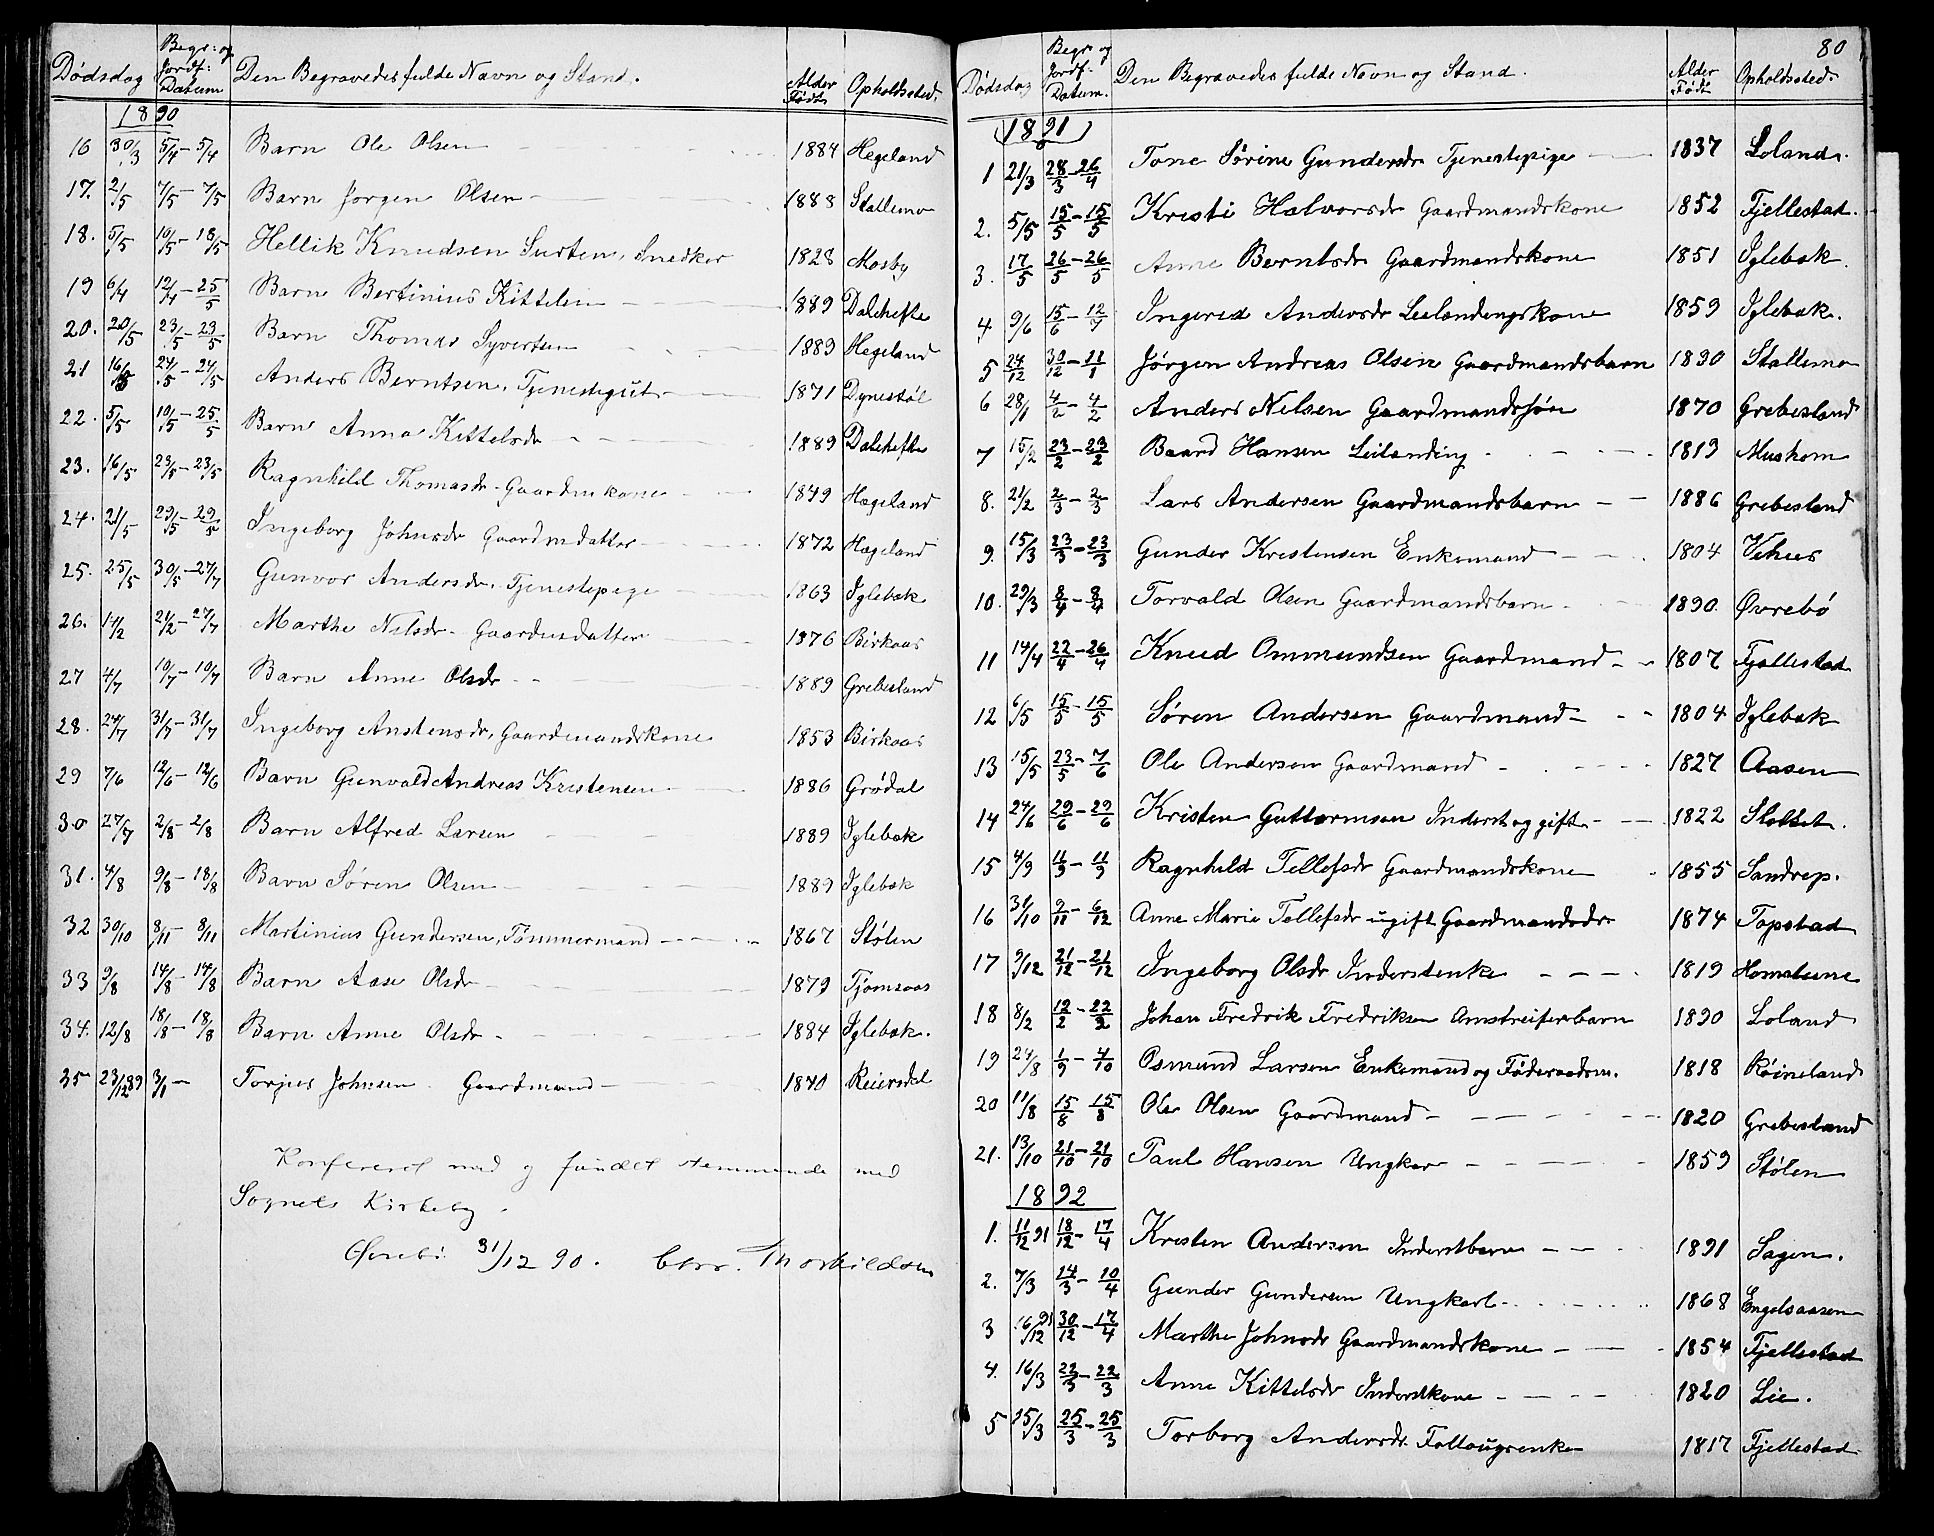 Dødsdag Begr: og Jordf: Datum Den Begravedes fulde Navn og Stand. Alder Født Opholdssted.
1890
16 30/3 5/4 – 5/4 Barn Ole Olsen 1884 Hegeland
17. 2/5 7/5 – 7/5 Barn Jørgen Olsen 1888 Stallemo
18. 5/5 10/5 – 18/5 Hellik Knudsen Surten, Snedker 1828 Mosby
19 6/4 12/4 – 25/5 Barn Bertinius Kittelsen 1889 Dalehefte
20. 20/5 23/5 – 23/5 Barn Thomas Syvertsen 1889 Hegeland
21 16/5 24/5 – 24/5 Anders Berntsen, Tjenestegut 1871 Dynestøl
22. 5/5 10/5 – 25/5 Barn Anna Kittelsdr 1889 Dalehefte
23. 16/5 23/5 – 23/5 Ragnhild Thomasdr Gaardmkone 1849 Hageland
24. 21/5 29/5 – 29/5 Ingeborg Johnsdr Gaardmdatter 1872 Hageland
25. 25/5 30/5 – 27/7 Gunvor Andersdr, Tjenestepige 1863 Iglebæk
26. 14/2 21/2 – 27/7 Marthe Nilsdr Gaardmsdatter 1876 Birkaas
27 4/7 10/7 – 10/7 Barn Anne Olsdr 1889 Grebesland
28. 24/7 31/7 – 31/7 Ingeborg Anstensdr, Gaardmandskone 1853 Birkaas
29 7/6 12/6 – 12/6 Barn Gunvald Andreas Kristensen 1886 Grødal
30 27/7 2/8 – 2/8 Barn Alfred Larsen 1889 Iglebæk
31. 4/8 9/8 – 18/8 Barn Søren Olsen 1889 Iglebæk
32 30/10 8/11 – 8/11 Martinius Gundersen, Tømmermand 1867 Stølen
33 9/8 14/8 – 14/8 Barn Aase Olsdr 1879 Tjomsaas
34. 12/8 18/8 – 18/8 Barn Anne Olsdr 1884 Iglebæk.
35 23/12 89 3/1 – Torjus Johnsen Gaardmand 1840 Reiersdal
Konfereret med og fundet stemmende med
Sognets Kirkebog.
Øvrebø 31/12 90. Chr. Thorkildsen
80
Dødsdag Begr og Jordf: Datum. Den Begravedes fulde Navn og Stand. Alder Født Opholdssted
1891
1 21/3 28/3 – 26/4 Tone Sørine Gundersdr Tjenestepige 1837 Loland.
2. 5/5 15/5 – 15/5 Kristi Halvorsdr Gaardmandskone 1852 Fjellestad.
3. 17/5 26/5 – 26/5 Anne Berntsdr Gaardmandskone 1851 Iglebæk.
4 9/6 15/6 – 12/7 Ingered Andersdr Leilændingskone 1859 Iglebæk.
5 24/12 30/12 – 11/1 Jørgen Andreas Olsen Gaardmandsbarn 1890 Stallemo
6 28/1 4/2 – 4/2 Anders Nelsen Gaardmandssøn 1870 Grebesland
7 15/2 23/2 – 23/2 Baard Hansen Leilænding 1813 Muskom
8. 21/2 2/3 – 2/3 Lars Andersen Gaardmandsbarn 1886 Grebesland
9. 15/3 23/3 – 23/3 Gunder Kristensen Enkemand 1804 Vehus
10. 29/3 8/4 – 8/4 Torvald Olsen Gaardmandsbarn 1890. Øvrebø
11 14/4 22/4 – 26/4 Knud Ommundsen Gaardmand 1807 Fjellestad
12 6/5 15/5 – 15/5 Søren Andersen Gaardmand 1804 Iglebæk
13 15/5 23/5 – 7/6 Ole Andersen Gaardmand 1827 Aasen
14 24/6 29/6 – 29/6 Kristen Guttormsen Inderst og gift 1822 Slottet.
15 4/9 11/9 – 11/9 Ragnhild Tellefsdr Gaardmandskone 1855 Sandrep.
16 31/10 9/11 – 6/12 Anne Marie Tellefsdr ugift Gaardmandsdr 1874 Topstad
17 9/12 21/12 – 21/12 Ingeborg Olsdr Inderstenke 1819 Homstene
18 8/2 12/2 – 22/2 Johan Fredrik Fredriksen Omstreiferbarn 1890 Loland
19 24/8 1/9 – 4/10 Osmund Larsen Enkemand og Føderaadsm. 1818 Røineland
20 11/8 15/8 – 15/8 Ole Olsen Gaardmand 1820 Grebesland
21. 13/10 21/10 – 21/10 Paul Hansen Ungkar 1859 Stølen
1892
1. 11/12 91 18/12 – 17/4 Kristen Andersen Inderstbarn 1891 Sagen.
2. 7/3 14/3 – 10/4 Gunder Gundersen Ungkarl 1868 Engelsaasen
3 16/12 91 30/12 – 17/4 Marthe Johnsdr Gaardmandskone 1854 Fjellestad
4. 16/3 22/3 – 22/3 Anne Kittelsdr Inderstkone 1820 Lie.
5 15/3 25/3 – 25/3 Torborg Andersdr. Follougsenke 1817 Fjellestad